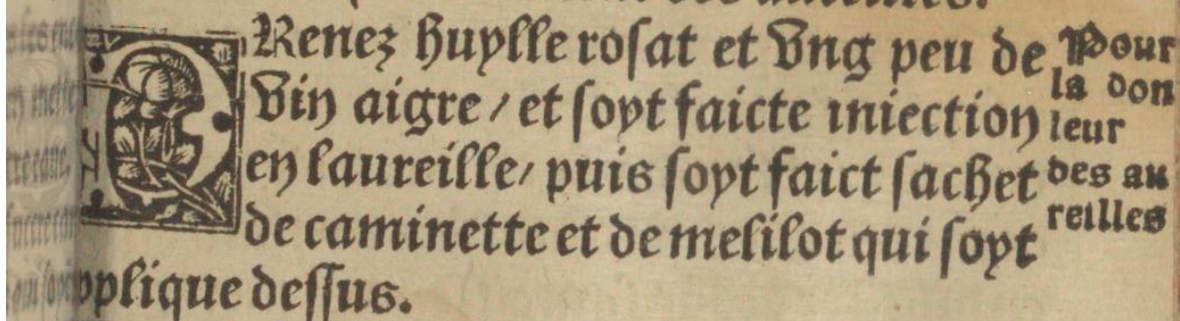 Renez huylle rosat et vng peu de
vin aigre / et soyt faicte iniection
en laureille / puis soyt faict sachet
de caminette et de melilot qui soyt
pplique dessus.
Pour
la don
leur
des au
reilles